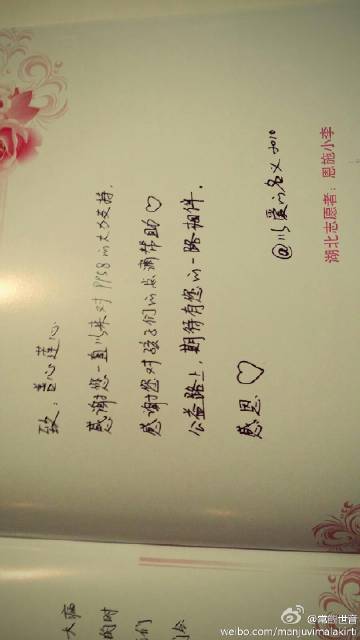 致：善心莲心
感谢您一直以来对PPSB的大力支持.
感谢您对孩子们的点滴帮助♡
公益路上，期待有您的一路相伴.
感恩♡
@以爱的名义2010
湖北志愿者：恩施小李
大病
的时
们
@常馨世音
weibo.com/manjuvimalakirti